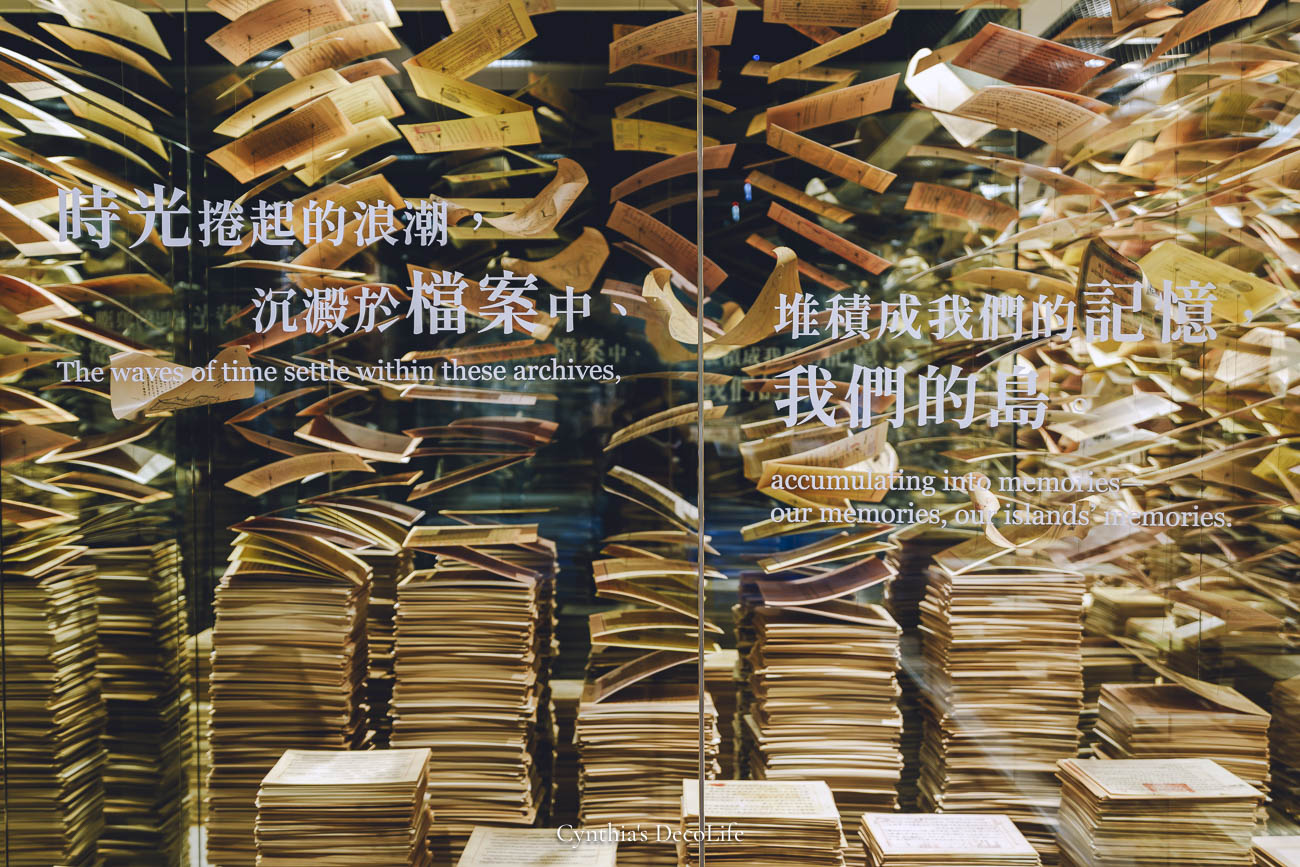 時光捲起的浪潮，
沉澱於檔案中、
The waves of time settle within these archives,
堆積成我們的記憶，
我們的島。
accumulating into memories—
our memories, our islands' memories.
Cynthia's DecoLife